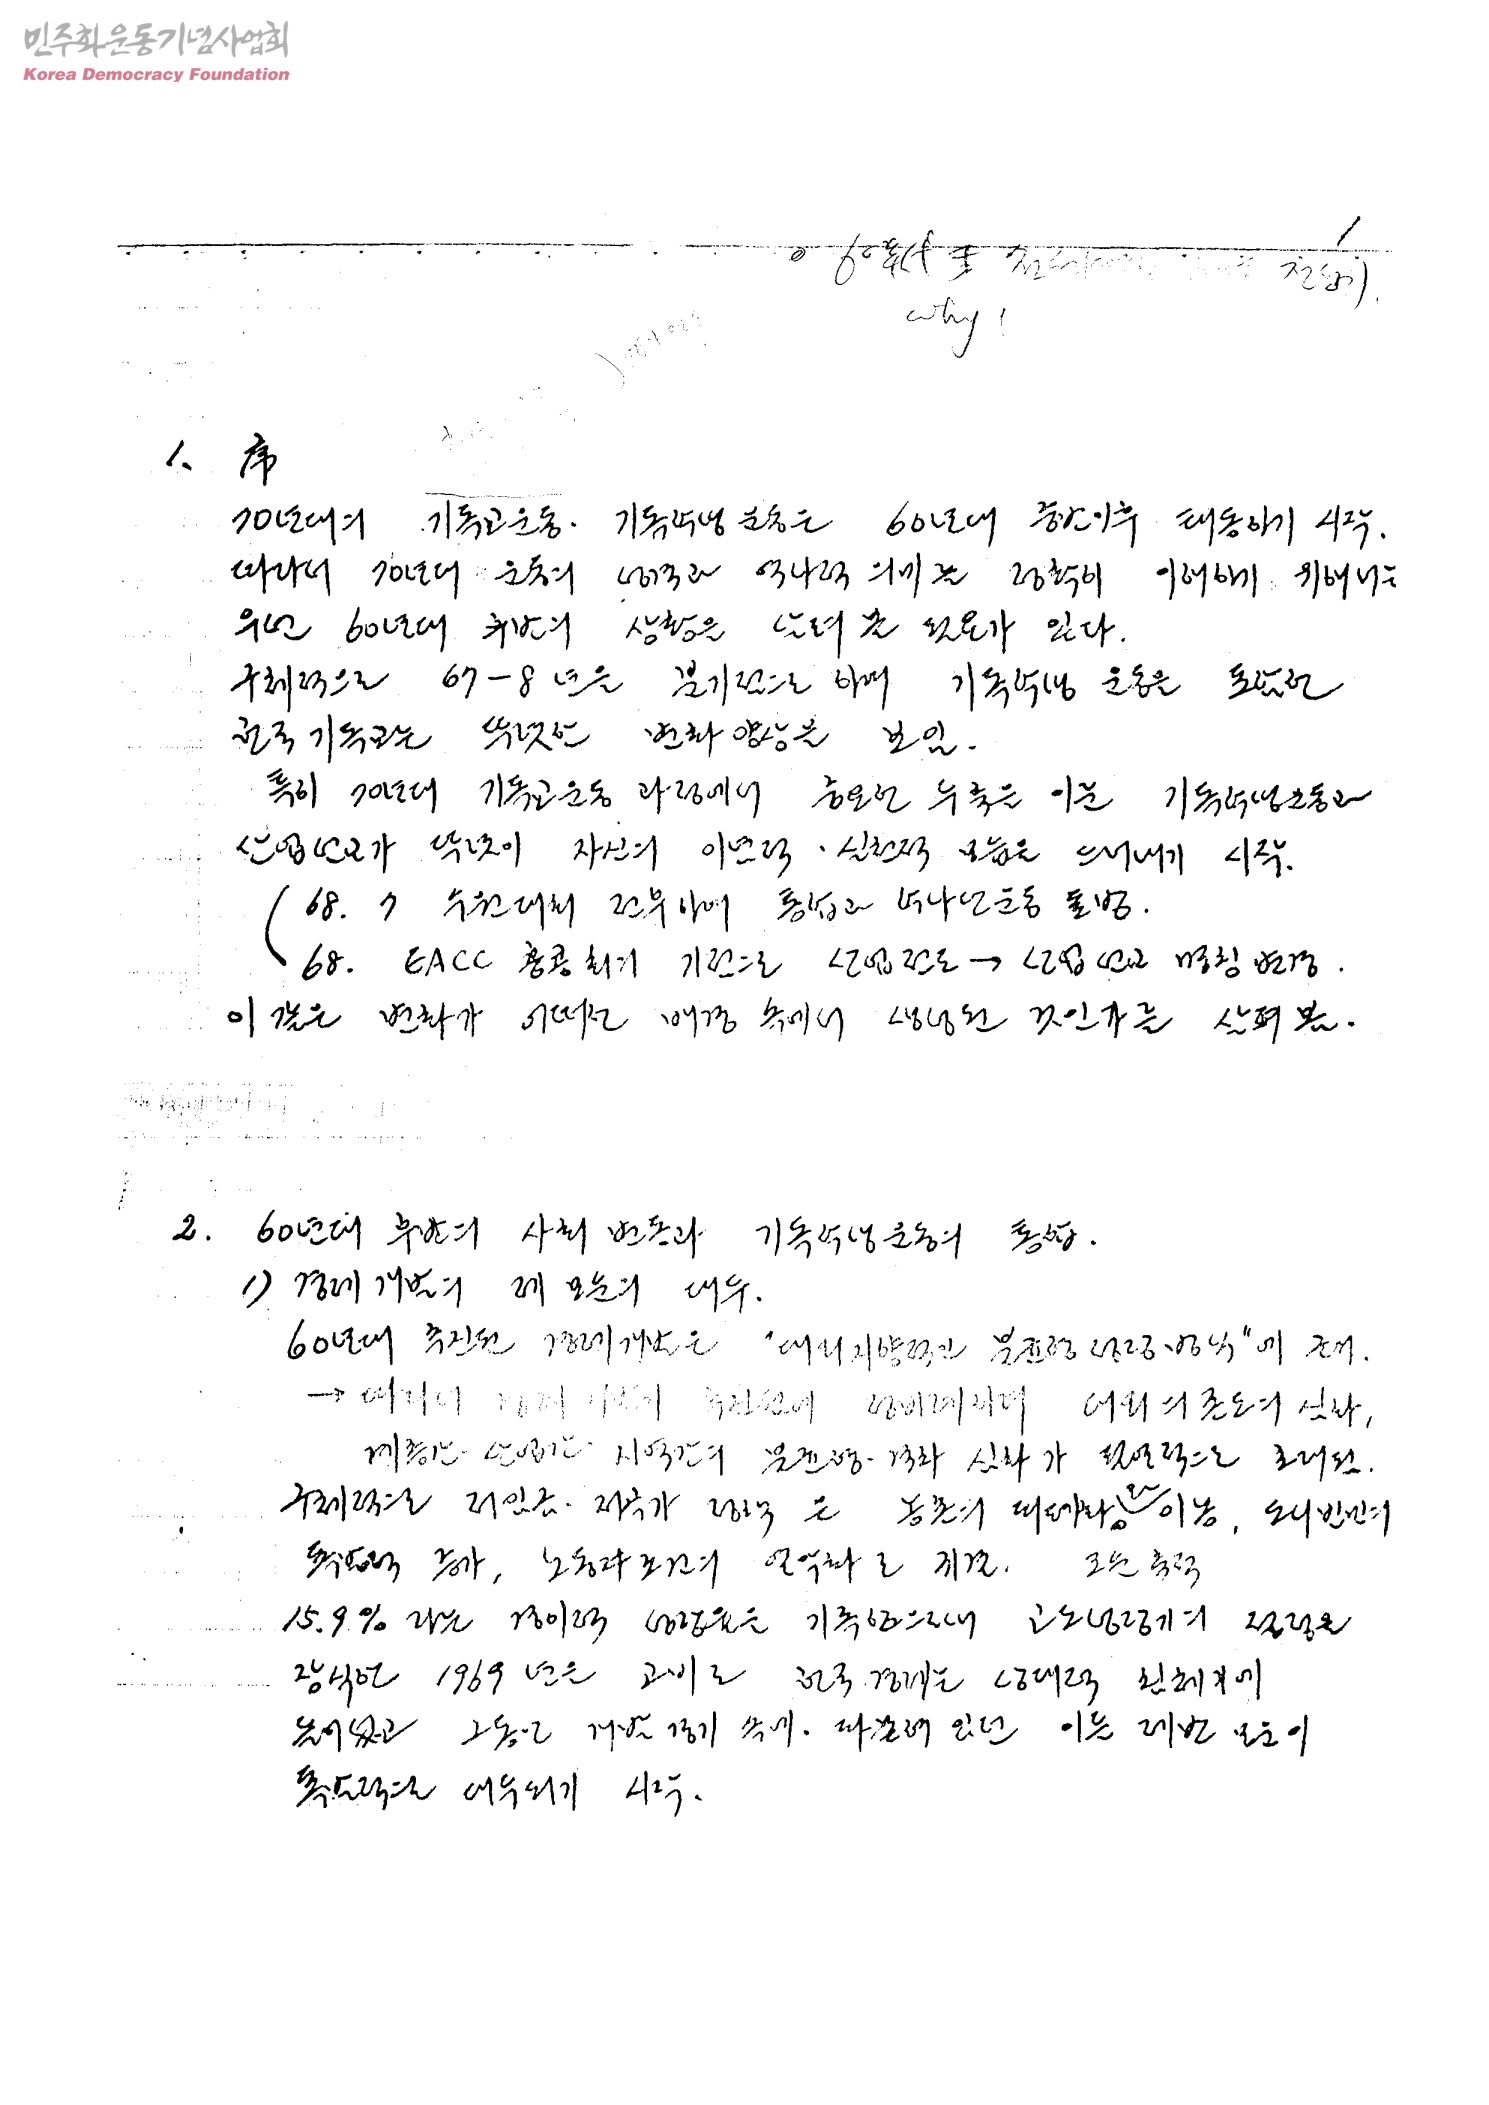 민주화운동기념사업회
Korea Democracy Foundation
1
60年代 전남기.
why!
1. 序
70년대의 기독교운동·기독학생운동은 60년대 중반이후 태동하기 시작.
따라서 70년대 운동의 성격과 역사적 의미를 정확히 이해하기 위해서는
우선 60년대 후반의 상황을 살펴볼 필요가 있다.
구체적으로 67-8년을 분기점으로 하여 기독학생 운동을 포함한
한국기독교는 뚜렷한 변화양상을 보임.
특히 70년대 기독교운동 과정에서 중요한 두축을 이룬 기독학생운동과
산업선교가 뚜렷이 자신의 이념적·실천적 모습을 드러내기 시작.
68. 7 수원대회 전후하여 통합과 학사단운동 출범.
68. EACC 홍콩회의 기점으로 산업전도→산업선교 명칭변경.
이 같은 변화가 어떠한 배경 속에서 생성된 것인가를 살펴봄.
2. 60년대 후반의 사회변동과 기독학생운동의 통합.
1) 경제개발의 제 모순의 대두.
60년대 추진된 경제개발은 "대외지향적인 불균형성장방식"에 근거.
→ 따라서 경제 추진됨에 정비례하여 대외의존도의 심화,
계층간·산업간·지역간의 불균형·격차 심화가 필연적으로 초래됨.
구체적으로 저임금·저곡가 정책은 농촌의 피폐화와 이농, 도시빈민의
폭발적 증가, 노동자조건의 열악화로 귀결. 모순축적
15.9%라는 경이적 성장율을 기록함으로써 고도성장기의 절정을
장식한 1969년을 고비로 한국경제는 상대적 침체기에
놓여졌고 그동안 개발경기 속에 파묻혀 있던 이들 제반 모순이
폭발적으로 대두되기 시작.